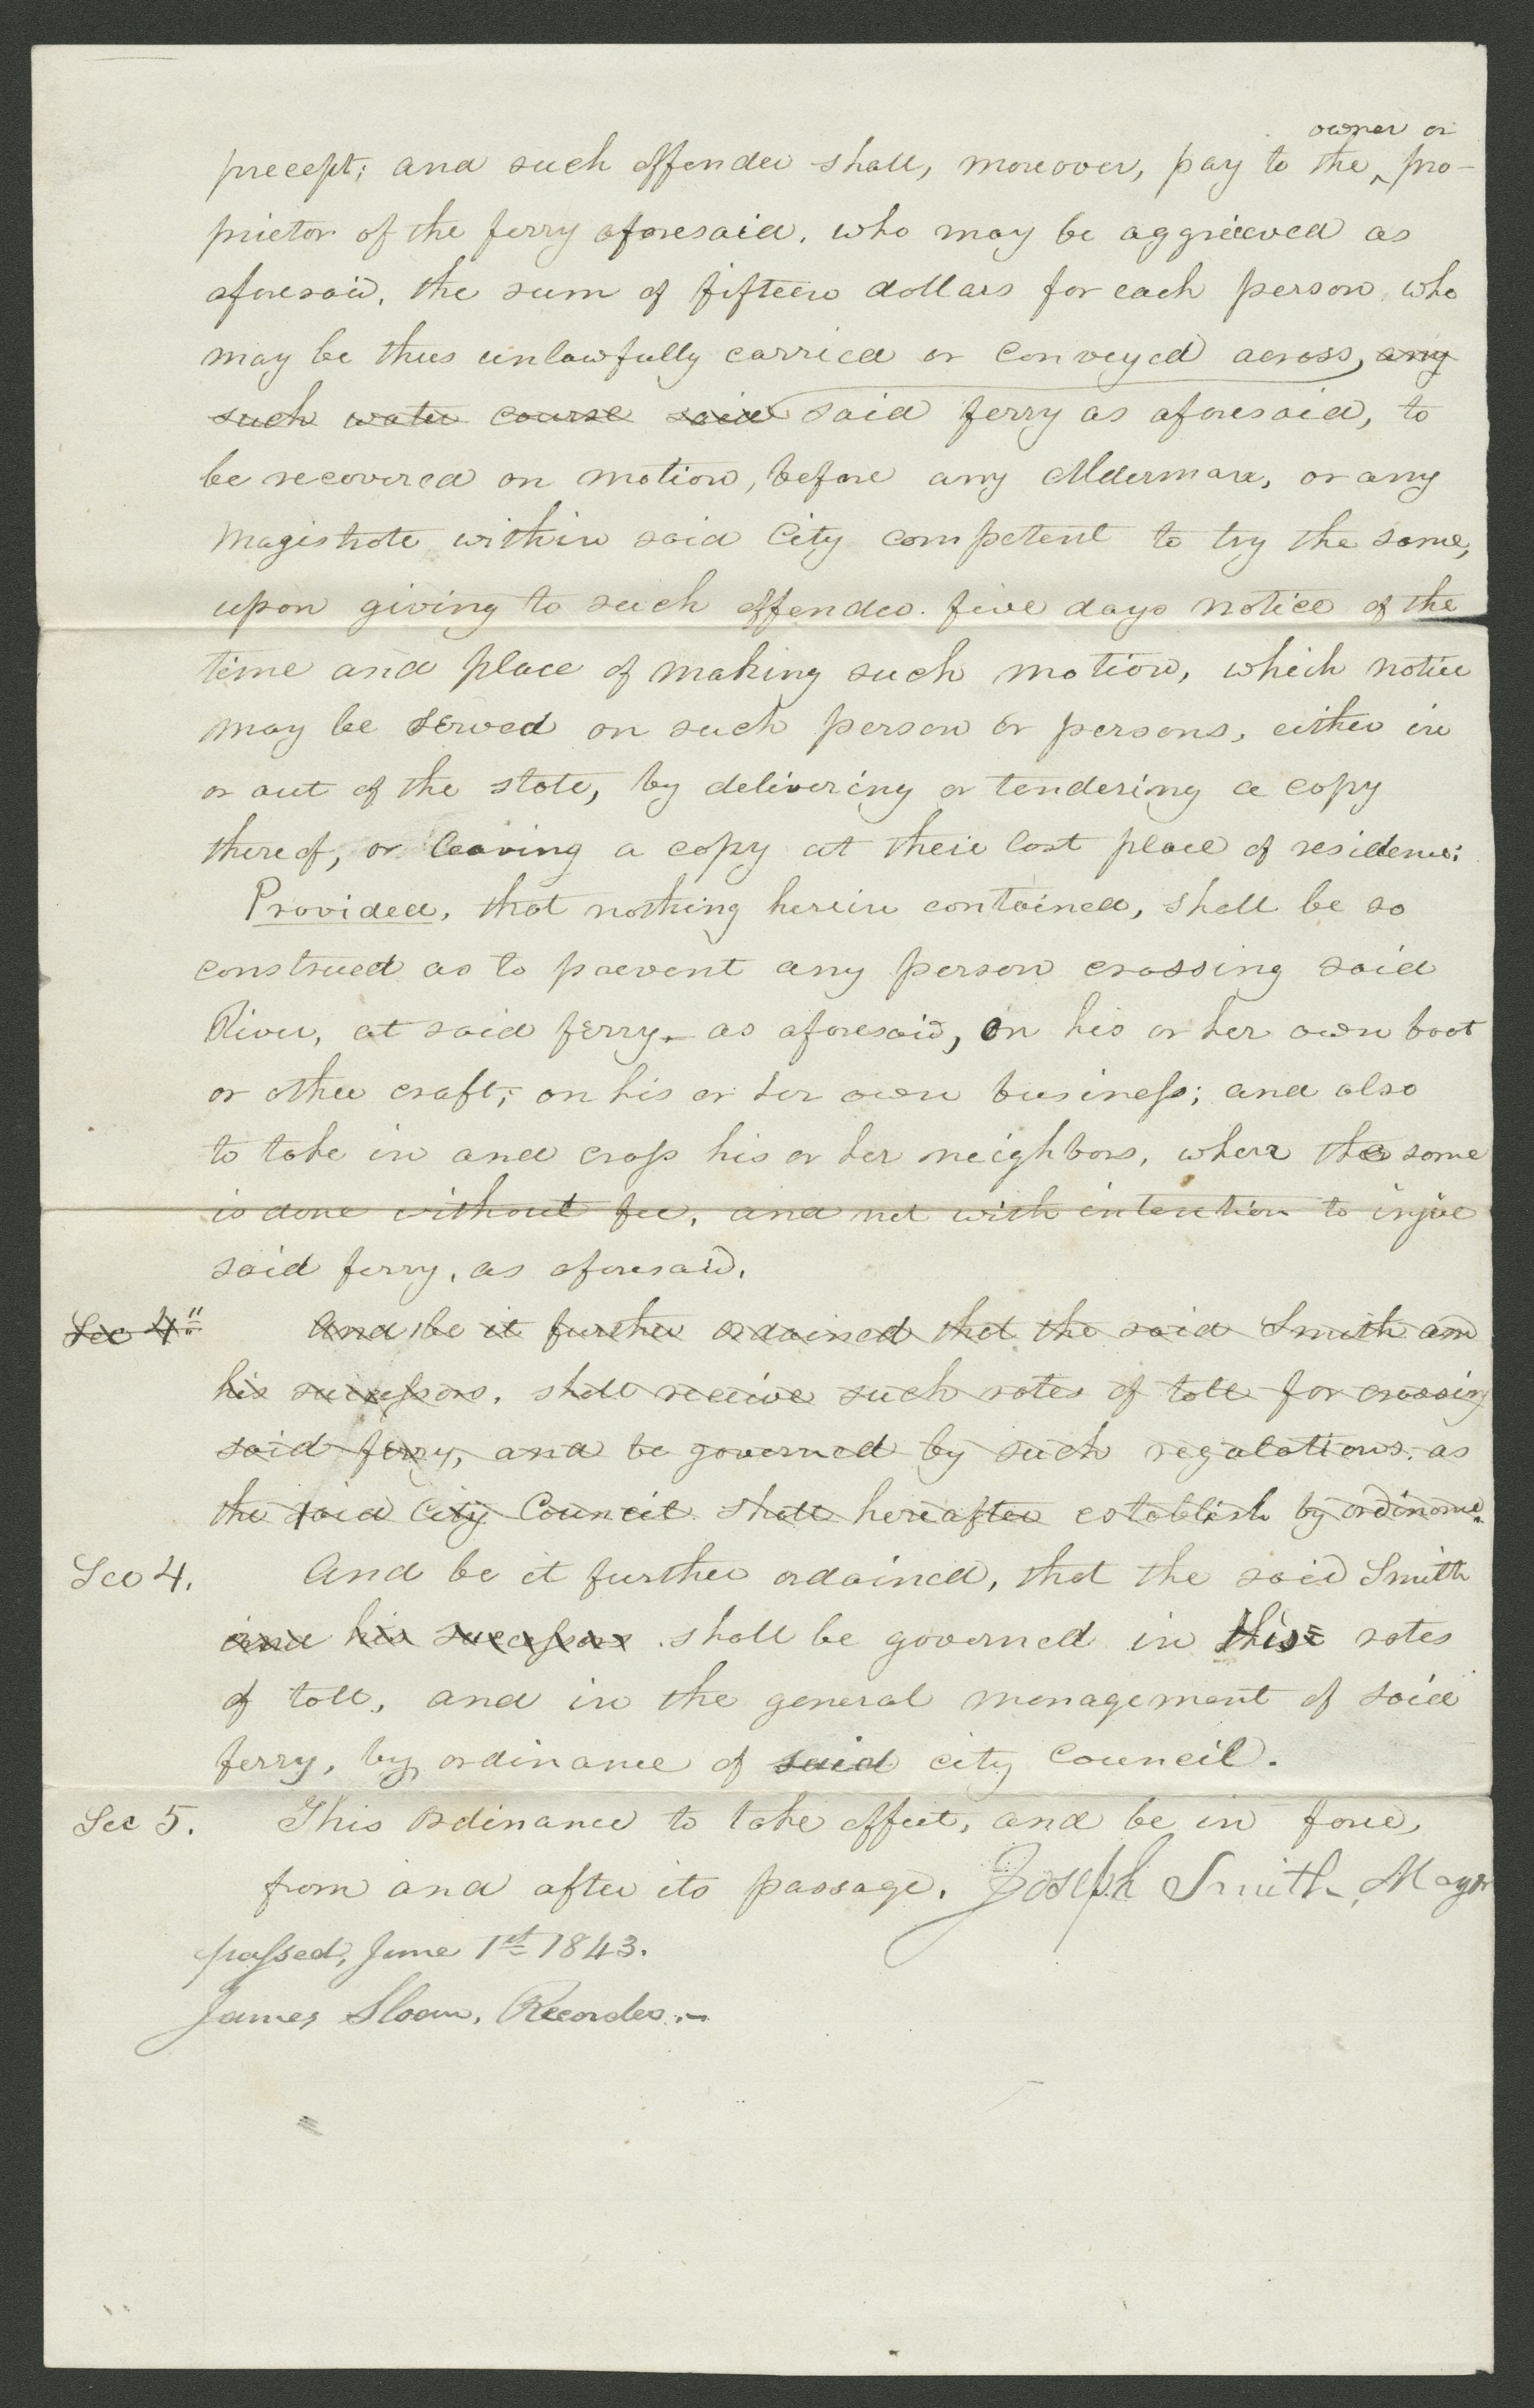 owner or
precept; and such offender shall, moreover, pay to the ‸ pro-
prietor of the ferry aforesaid, who may be aggrieved as
aforesaid, the sum of fifteen dollars for each person who
may be thus unlawfully carried or conveyed across, any
such water course said said ferry as aforesaid, to
be recovered on motion, before any Alderman, or any
Magistrate within said City competent to try the same,
upon giving to such offender five days notice of the
time and place of making such motion, which notice
may be served on such person or persons, either in
or out of the state, by delivering or tendering a copy
thereof, or leaving a copy at their last place of residence:
Provided, that nothing herein contained, shall be so
construed as to prevent any person crossing said
River, at said ferry, as aforesaid, on his or her own boat
or other craft, on his or her own business; and also
to take in and cross his or her neighbors, where the same
is done without fee, and not with intention to injure
said ferry, as aforesaid.
Sec 4" And be it further ordained that the said Smith and
his successors, shall receive such rates of toll for crossing
said ferry, and be governed by such regulations, as
the said City Council shall hereafter establish by ordinance.
Sec 4. And be it further ordained, that the said Smith
and his successors shall be governed in his rates
of toll, and in the general management of said
ferry, by ordinance of said city council.
Sec 5. This Ordinance to take effect, and be in force,
from and after its passage. Joseph Smith, Mayor
passed, June 1st 1843.
James Sloan, Recorder.-